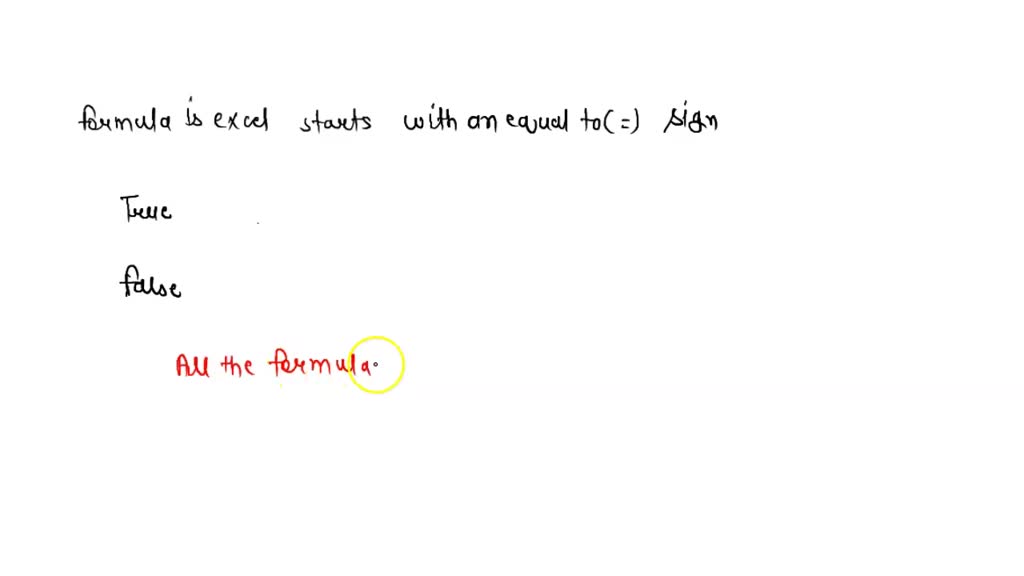 formula is excel starts with an equal to (=) sign
True
false
All the formula